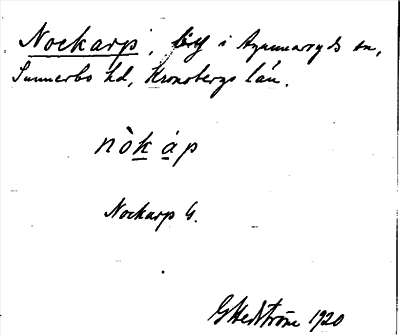 Nockarp, i Agunnaryds sn,
Sunnerbo hd, Kronobergs län.
nòkáp
Nockarp G.
G Hedström 1920